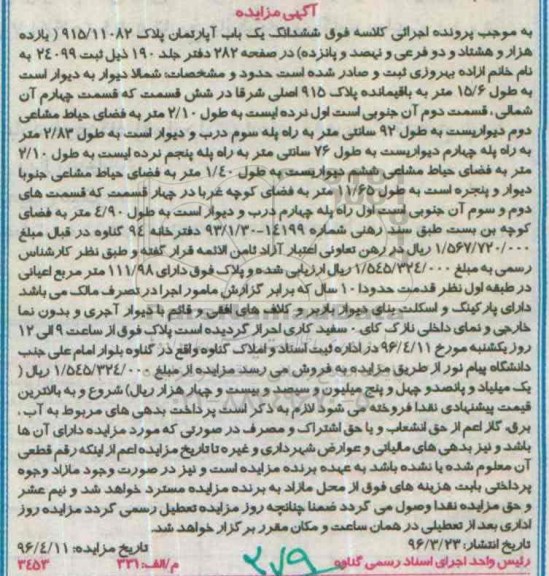 آگهی مزایده
به موجب پرونده اجرائی کلاسه فوق ششدانگ یک باب آپارتمان پلاک ۹۱۵/۱۱۰۸۲ (یازده
هزار و هشتاد و دو فرعی و نهصد و پانزده) در صفحه ۲۸۲ دفتر جلد ۱۹۰ ذیل ثبت ۲۴۰۹۹ به
نام خانم ازاده بهروزی ثبت و صادر شده است حدود و مشخصات: شمالا دیوار به دیوار است
به طول ۱۵/۶ متر به باقیمانده پلاک ۹۱۵ اصلی شرقا در شش قسمت که قسمت چهارم آن
شمالی، قسمت دوم آن جنوبی است اول نرده ایست به طول ۲/۱۰ متر به فضای حیاط مشاعی
دوم دیواریست به طول ۹۲ سانتی متر به راه پله سوم درب و دیوار است به طول ۲/۸۳ متر
به راه پله چهارم دیواریست به طول ۷۶ سانتی متر به راه پله پنجم نرده ایست به طول ۲/۱۰
متر به فضای حیاط مشاعی ششم دیواریست به طول ۱/۴۰ متر به فضای حیاط مشاعی جنوبا
دیوار و پنجره است به طول ۱۱/۶۵ متر به فضای کوچه غربا در چهار قسمت که قسمت های
دوم و سوم آن جنوبی است اول راه پله چهارم درب و دیوار است به طول ۴/۹۰ متر به فضای
کوچه بن بست طبق سند رهنی شماره ۱۴۱۹۹-۹۳/۱/۳۰ دفترخانه ۹۴ گناوه در قبال مبلغ
۱/۵۶۷/۷۲۰/۰۰۰ ریال در رهن تعاونی اعتبار آزاد ثامن الائمه قرار گفته و طبق نظر کارشناس
رسمی به مبلغ ۱/۵۴۵/۳۲۴/۰۰۰ ریال ارزیابی شده و پلاک فوق دارای ۱۱۱/۹۸ متر مربع اعیانی
در طبقه اول نظر قدمت حدودا ۱۰ سال که برابر گزارش مامور اجرا در تصرف مالک می باشد
دارای پارکینگ و اسکلت بنای دیوار باربر و کلاف های افقی و قائم با دیوار آجری و بدون نما
خارجی و نمای داخلی نازک کای. سفید کاری احراز گردیده است پلاک فوق از ساعت ۹ الی ۱۲
روز یکشنبه مورخ ۹۶/۴/۱۱ در اداره ثبت اسناد و املاک گناوه واقع در گناوه بلوار امام علی جنب
دانشگاه پیام نور از طریق مزایده به فروش می رسد مزایده از مبلغ ۱/۵۴۵/۳۲۴/۰۰۰ ریال (
یک میلیاد و پانصدو چهل و پنج میلیون و سیصد و بیست و چهار هزار ریال) شروع و به بالاترین
قیمت پیشنهادی نقدا فروخته می شود لازم به ذکر است پرداخت بدهی های مربوط به آب،
برق، گاز اعم از حق انشعاب و یا حق اشتراک و مصرف در صورتی که مورد مزایده دارای آن ها
باشد و نیز بدهی های مالیاتی و عوارض شهرداری و غیره تا تاریخ مزایده اعم از اینکه رقم قطعی
آن معلوم شده یا نشده باشد به عهده برنده مزایده است و نیز در صورت وجود مازاد وجوه
پرداختی بابت هزینه های فوق از محل مازاد به برنده مزایده مسترد خواهد شد و نیم عشر
و حق مزایده نقدا وصول می گردد ضمنا چنانچه روز مزایده تعطیل رسمی گردد مزایده روز
اداری بعد از تعطیلی در همان ساعت و مکان مقرر برگزار خواهد شد.
تاریخ انتشار: ۹۶/۳/۲۳ تاریخ مزایده: ۹۶/۴/۱۱
رئیس واحد اجرای اسناد رسمی گناوه ۲۷۹ م/الف: ۳۳۱ ۳۴۵۳